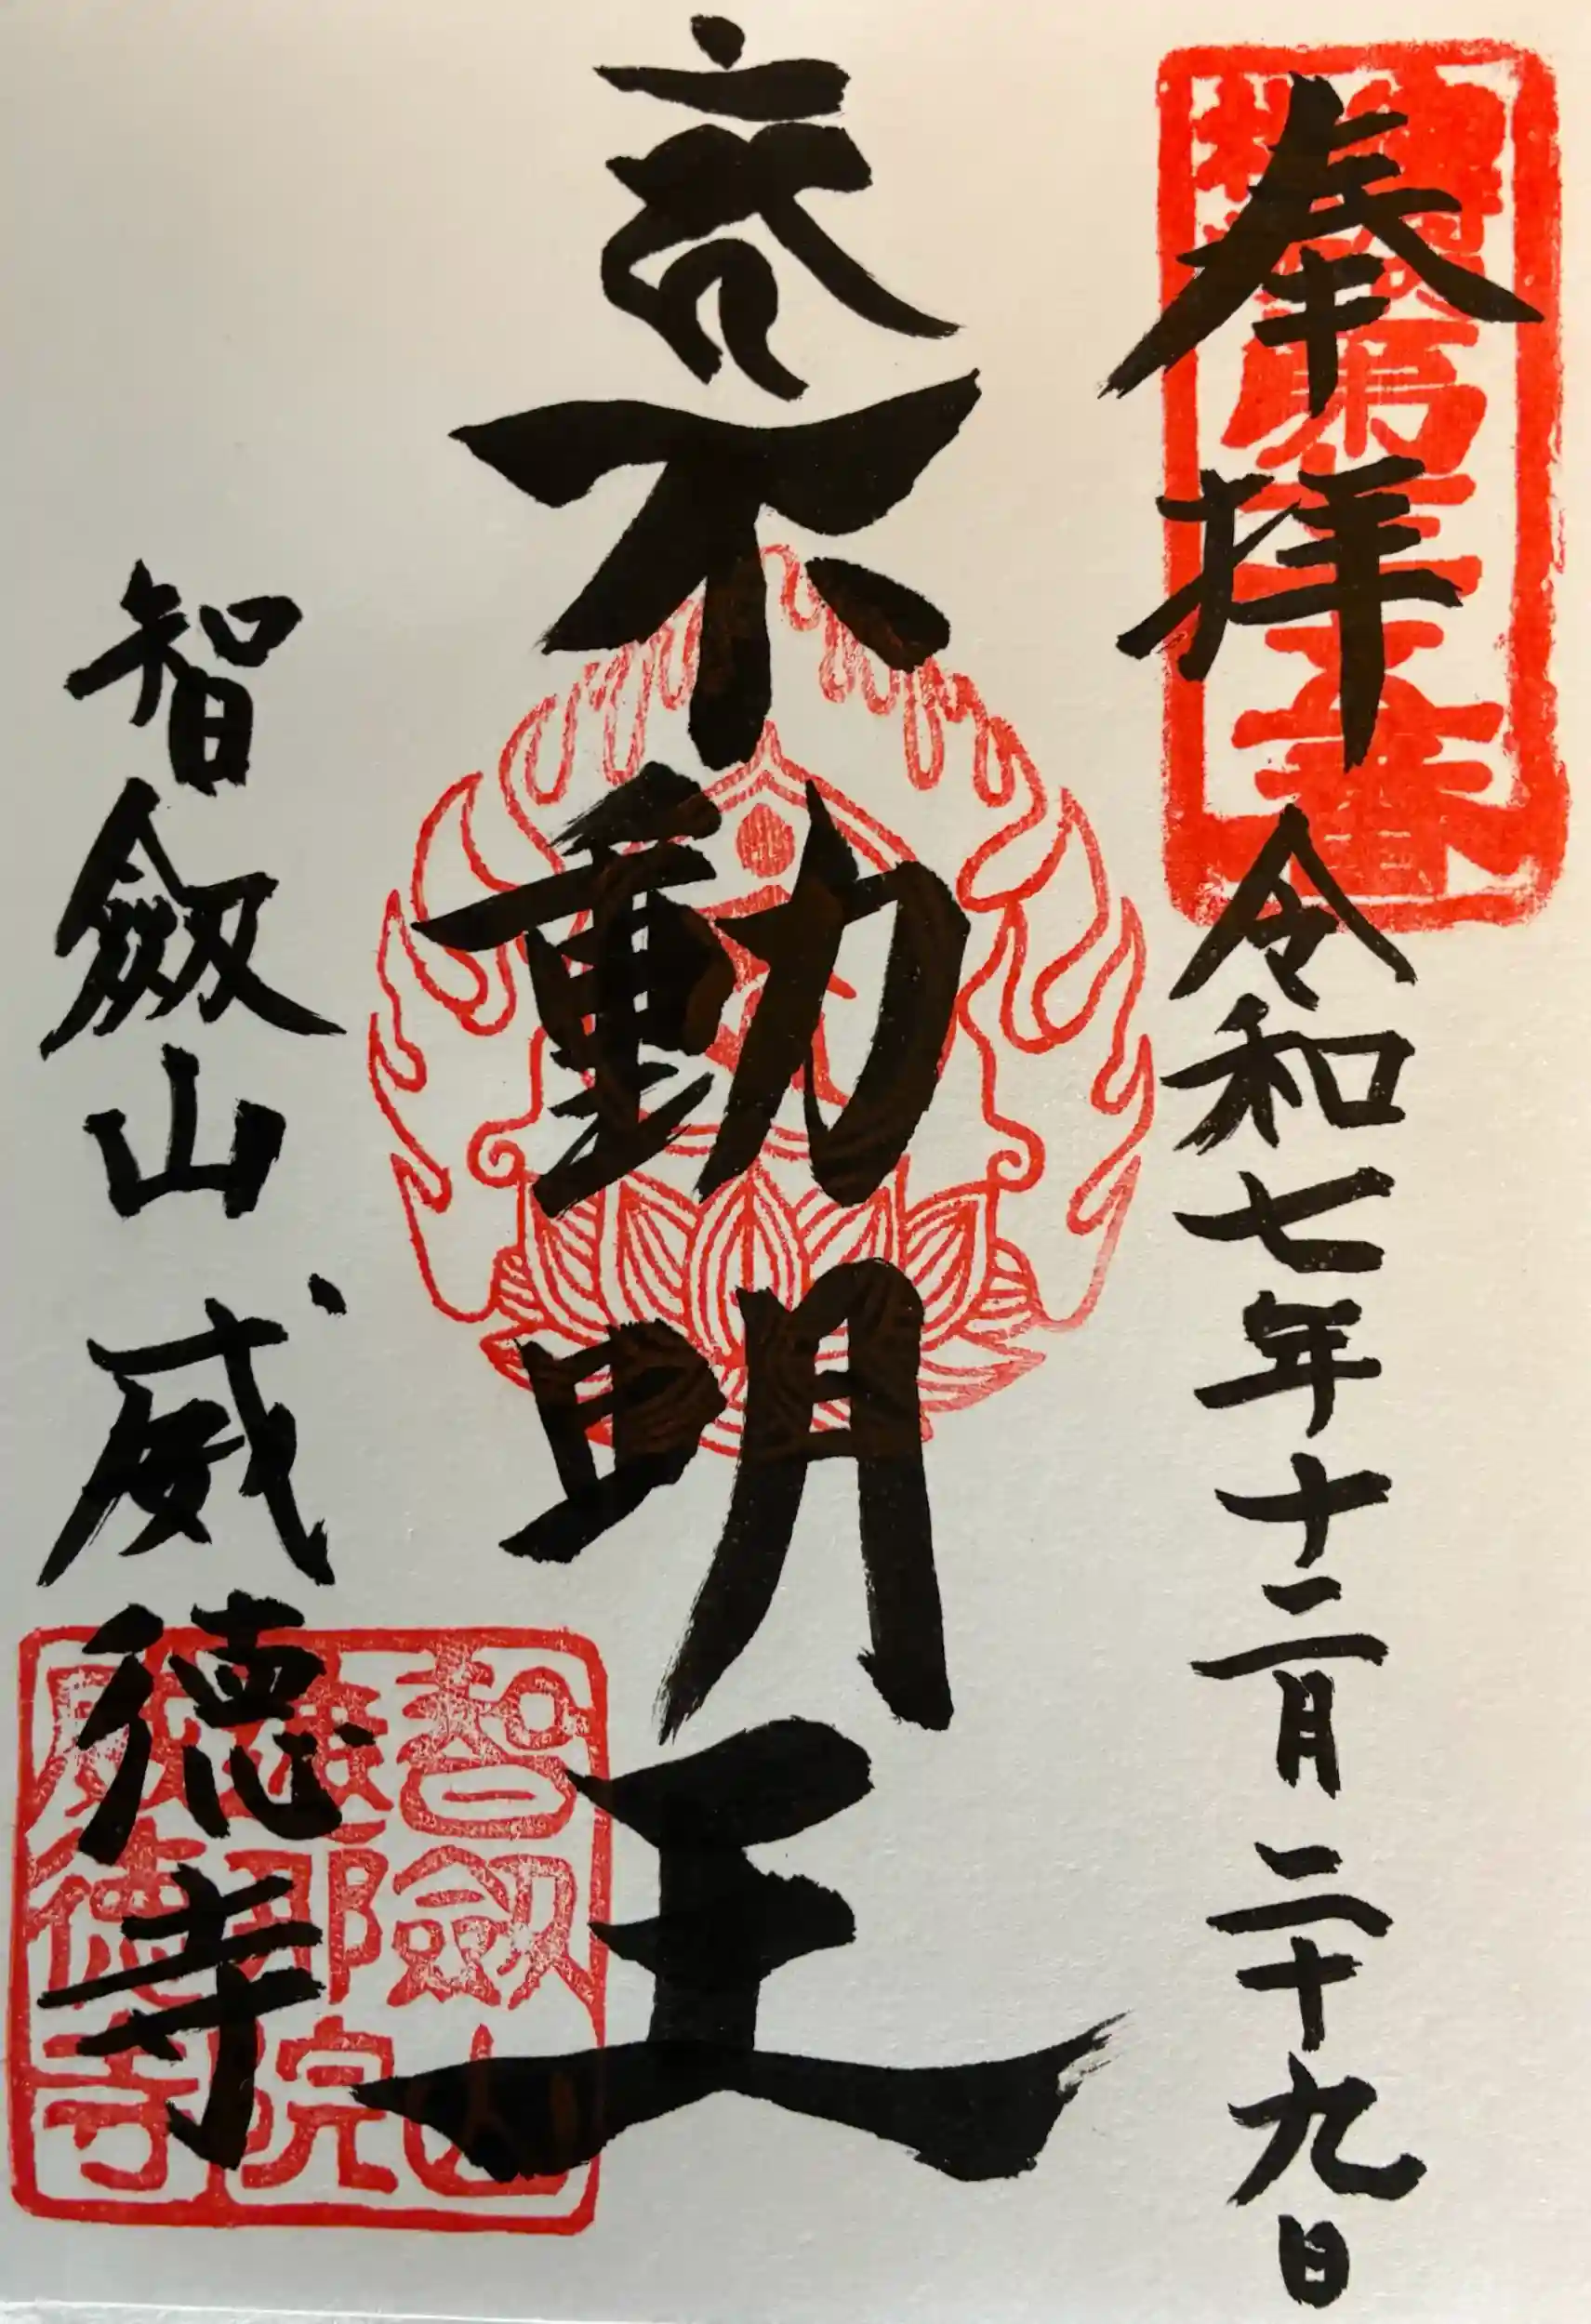 奉拝
令和七年十二月二十九日
不動明王
智劔山威徳寺
智劔山
威徳寺